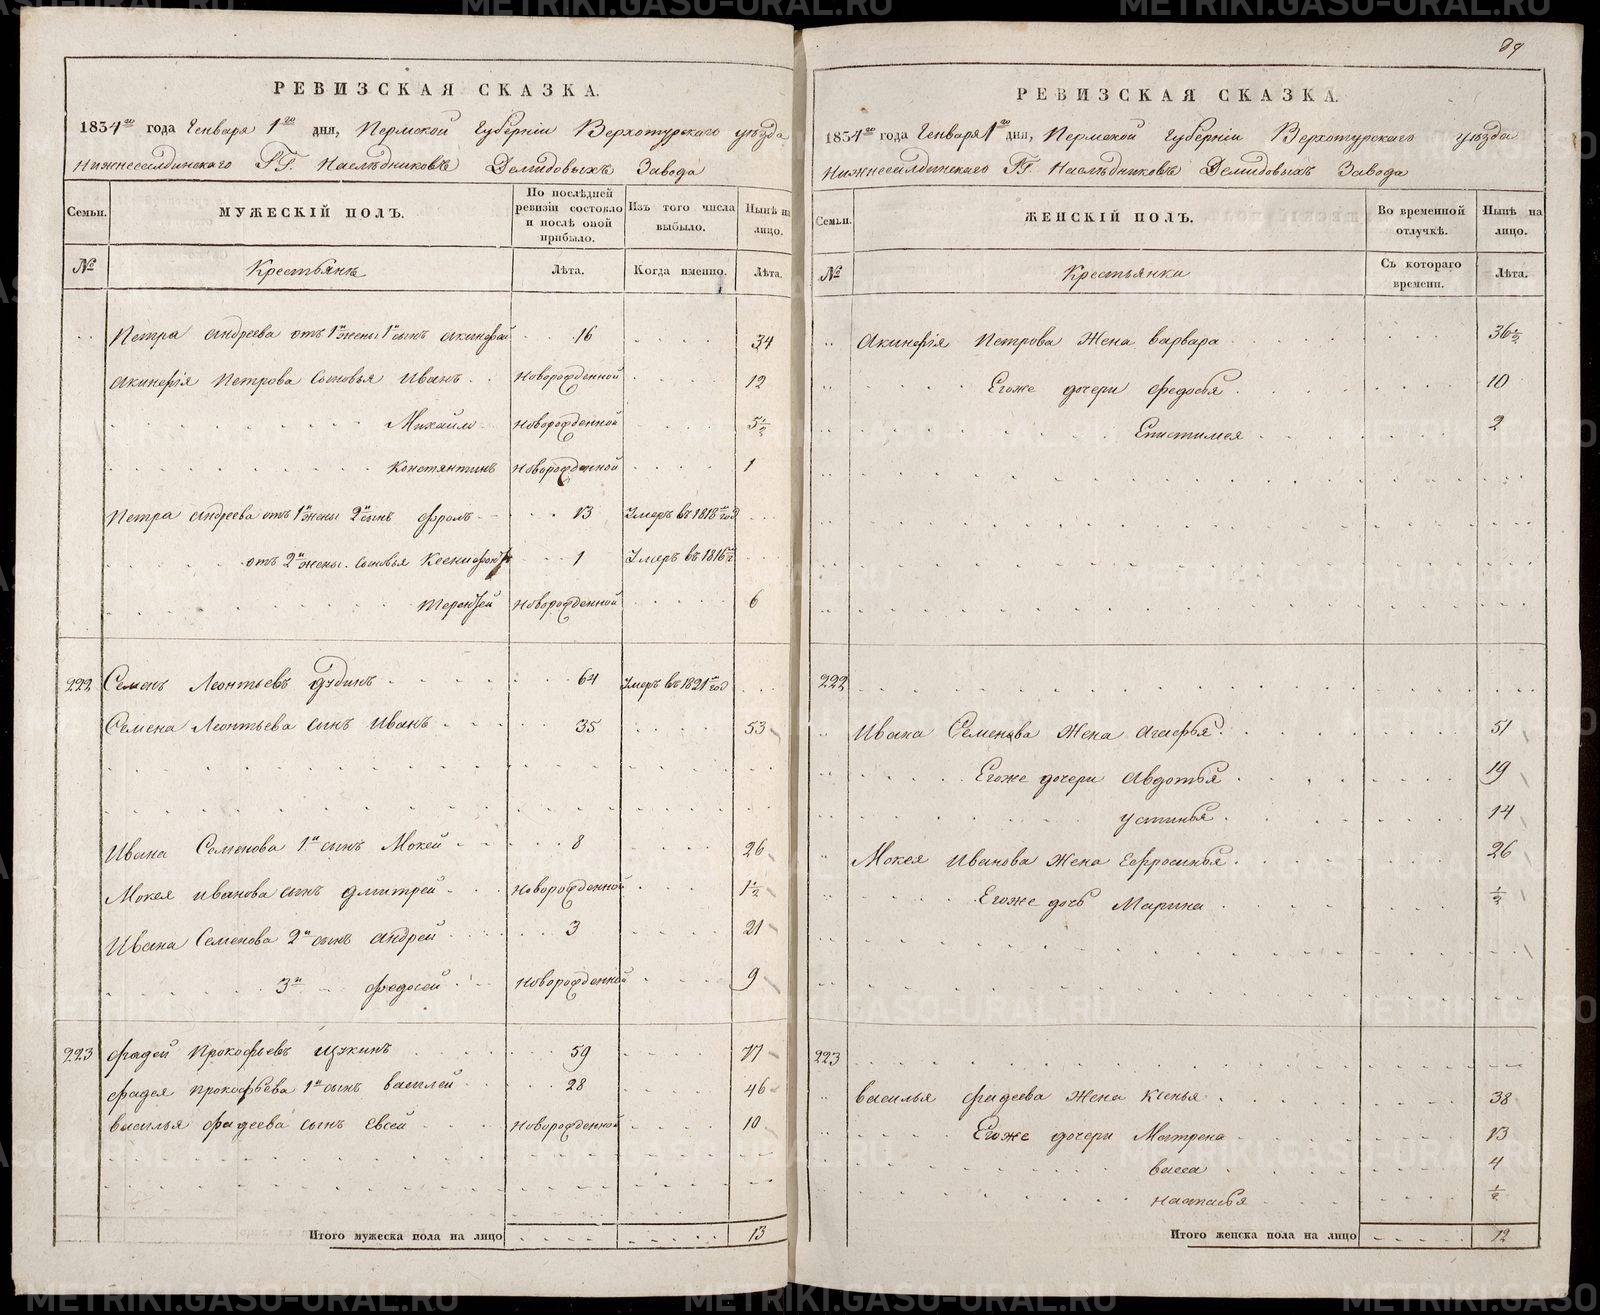 РЕВИЗСКАЯ СКАЗКА.
1834го года Генваря 1го дня, Пермской Губерніи Верхотурскаго уѣзда
Нижнесалдинскаго ГГ. Наслѣдниковъ Демидовыхъ Завода
Семьи. МУЖЕСКІЙ ПОЛЪ. По послѣдней ревизіи состояло и послѣ оной прибыло. Изъ того числа выбыло. Нынѣ на лицо.
№ Крестьянъ Лѣта. Когда именно. Лѣта.
Петра Андреева отъ 1й жены 1й сынъ Акинфей 16 34
Акинфія Петрова сыновья Иванъ Новорожденной 12
Михайло Новорожденной 5 1/2
Констянтинъ Новорожденной 1
Петра Андреева отъ 1й жены 2й сынъ Фролъ 13 Умеръ въ 1818м год
отъ 2й жены сыновья Ксенофонтъ 1 Умеръ въ 1816м
Терентей Новорожденной 6
222 Семенъ Леонтьевъ Дудинъ 64 Умеръ въ 1821м год
Семена Леонтьева сынъ Иванъ 35 53
Ивана Семенова 1й сынъ Мокей 8 26
Мокея Иванова сынъ Дмитрей Новорожденной 1 1/2
Ивана Семенова 2й сынъ Андрей 3 21
3й Федосей Новорожденной 9
223 Фадей Прокофьевъ Щукинъ 59 77
Фадея Прокофьева 1й сынъ Василей 28 46
Василья Фадеева сынъ Евсей Новорожденной 10
Итого мужеска пола на лицо 13
89
РЕВИЗСКАЯ СКАЗКА.
1834го года Генваря 1го дня, Пермской Губерніи Верхотурскаго уѣзда
Нижнесалдинскаго ГГ. Наслѣдниковъ Демидовыхъ Завода
Семьи. ЖЕНСКІЙ ПОЛЪ. Во временной отлучкѣ. Нынѣ на лицо.
№ Крестьянки Съ котораго времени. Лѣта.
Акинфія Петрова Жена Варвара 36 1/2
Егоже дочери Федосья 10
Епистимея 2
222
Ивана Семенова Жена Агафья 51
Егоже дочери Авдотья 19
Устинья 14
Мокея Иванова Жена Ефросинья 26
Егоже дочь Марина 1/2
223
Василья Фадеева Жена Ксенья 38
Егоже дочери Матрена 13
Васса 4
Настасья 1/2
Итого женска пола на лицо 12
METRIKI.GASO-URAL.RU